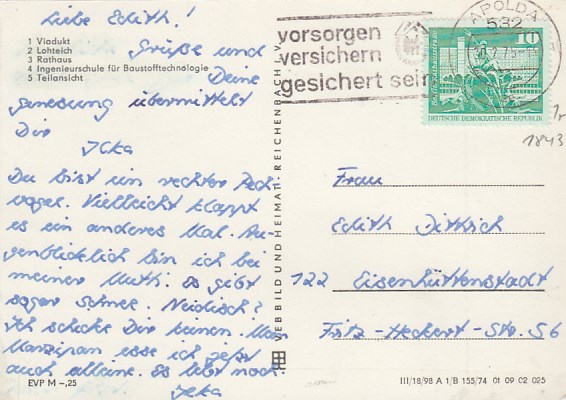 Liebe Edith!
1 Viadukt
2 Lohteich
3 Rathaus
4 Ingenieurschule für Baustofftechnologie
5 Teilansicht
Grüße und
Deine
genesung übermittelt
Dir
Ilka
Du bist ein rechter Pech
vogel. Vielleicht klappt
es ein anderes Mal. Au-
genblicklich bin ich bei
meiner Muth. Es gibt
sogar Schnee. Neidisch?
Ich schicke Dir keinen.
Marzipan esse ich jetzt
auch alleine. Es lebt noch:
Ilka
EVP M –,25
VEB BILD UND HEIMAT REICHENBACH I. V.
vorsorgen
versichern
gesichert sein
APOLDA
532
10
DEUTSCHE DEMOKRATISCHE REPUBLIK
1843
Frau
Edith Dittrich
122 Eisenhüttenstadt
Fritz-Heckert-Str. 56
III/18/98 A 1/B 155/74 01 09 02 025